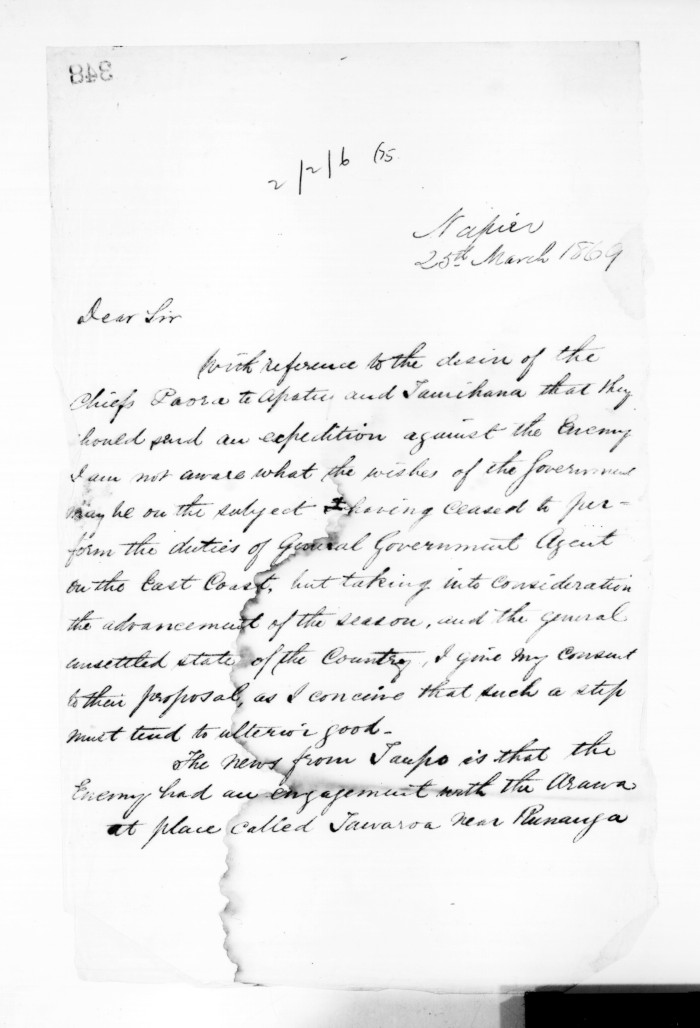 348
2/2/6 65
Napier
25th March 1869
Dear Sir
With reference to the desire of the
Chiefs Paora te Apatu and Tamihana that they
should send an expedition against the Enemy
I am not aware what the wishes of the Government
may be on the subject I having ceased to per-
form the duties of General Government Agent
on the East Coast, but taking into consideration
the advancement of the season, and the general
unsettled state of the Country, I give my consent
to their proposal, as I conceive that such a step
must tend to ulterior good.
The news from Taupo is that the
Enemy had an engagement with the Arawa
at place called Tawaroa near Runanga